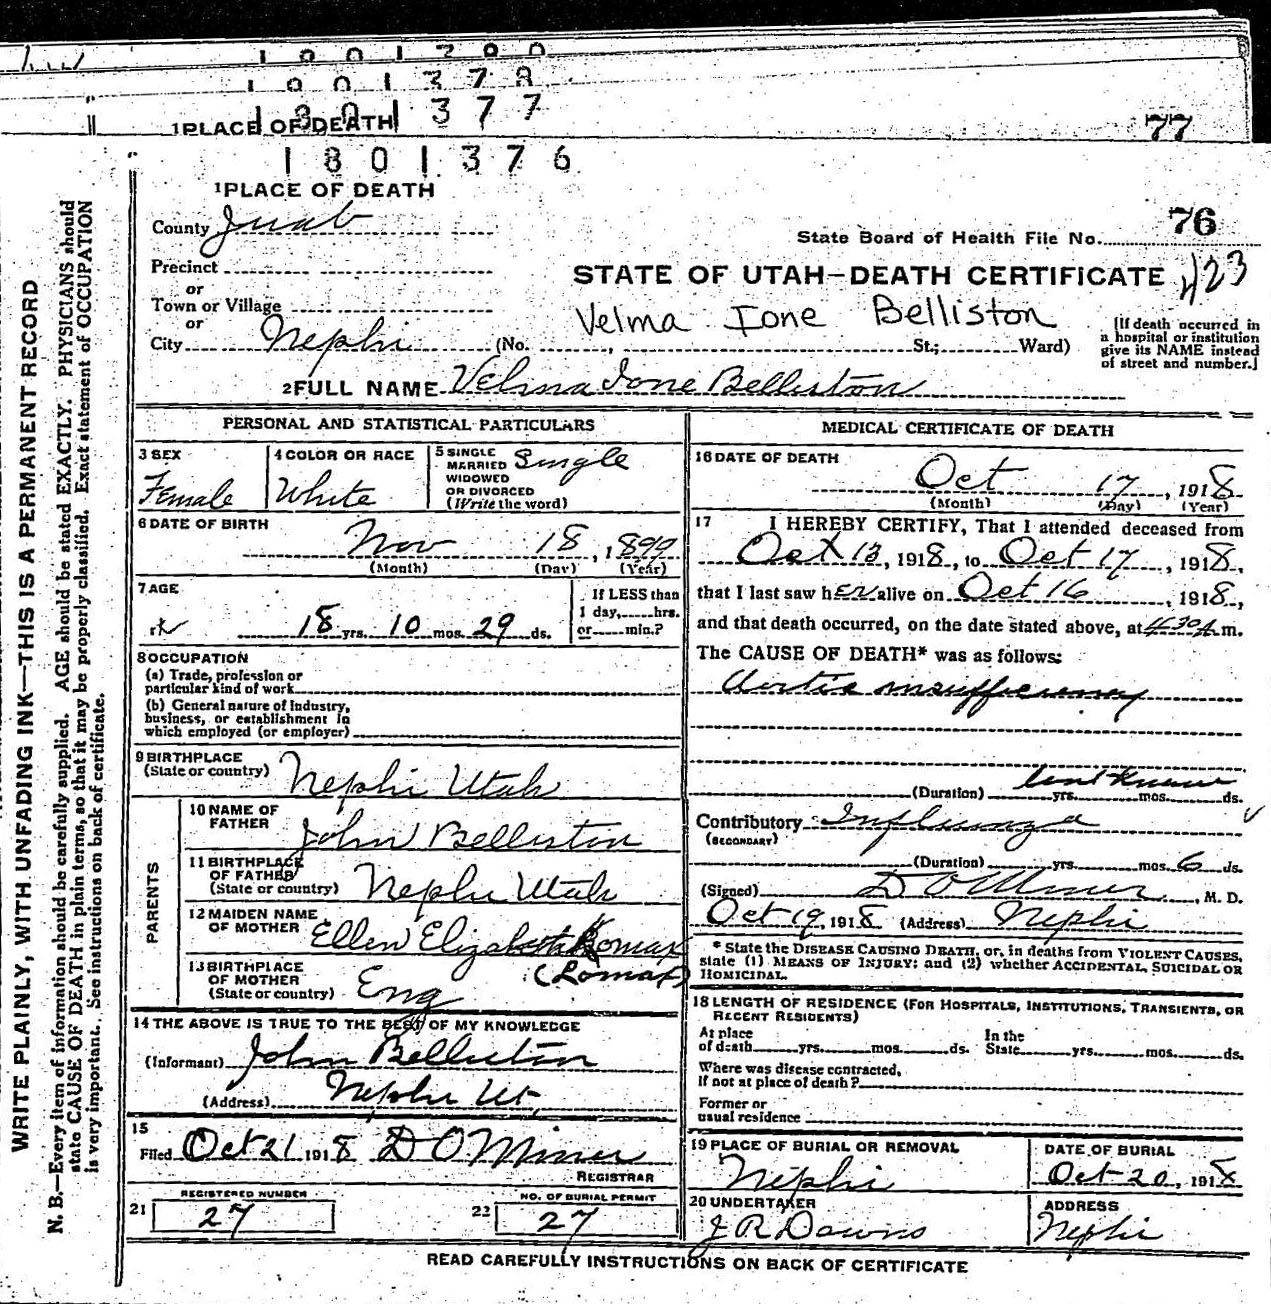 1 8 0 1 3 7 8
1 8 0 1 3 7 7
1 PLACE OF DEATH
77
1 8 0 1 3 7 6
1 PLACE OF DEATH
County Juab
State Board of Health File No. 76
Precinct
or
STATE OF UTAH—DEATH CERTIFICATE 423
Town or Village
or
Velma Ione Belliston
City Nephi (No. , St.; Ward)
[If death occurred in
a hospital or institution
give its NAME instead
of street and number.]
2 FULL NAME Velma Ione Belliston
WRITE PLAINLY, WITH UNFADING INK—THIS IS A PERMANENT RECORD
N. B.—Every item of information should be carefully supplied. AGE should be stated EXACTLY. PHYSICIANS should
state CAUSE OF DEATH in plain terms, so that it may be properly classified. Exact statement of OCCUPATION
is very important. See instructions on back of certificate.
PERSONAL AND STATISTICAL PARTICULARS
3 SEX
Female
4 COLOR OR RACE
White
5 SINGLE
MARRIED
WIDOWED
OR DIVORCED
(Write the word)
Single
6 DATE OF BIRTH
Nov 18, 1899
(Month) (Day) (Year)
7 AGE
18 yrs. 10 mos. 29 ds.
If LESS than
1 day, hrs.
or min.?
8 OCCUPATION
(a) Trade, profession or
particular kind of work
(b) General nature of Industry,
business, or establishment in
which employed (or employer)
9 BIRTHPLACE
(State or country) Nephi Utah
PARENTS
10 NAME OF
FATHER John Belliston
11 BIRTHPLACE
OF FATHER
(State or country) Nephi Utah
12 MAIDEN NAME
OF MOTHER Ellen Elizabeth Lomax
(Lomax)
13 BIRTHPLACE
OF MOTHER
(State or country) Eng
14 THE ABOVE IS TRUE TO THE BEST OF MY KNOWLEDGE
(Informant) John Belliston
(Address) Nephi Ut.
15
Filed Oct 21 1918 D O Miner
REGISTRAR
REGISTERED NUMBER
21 27
NO. OF BURIAL PERMIT
22 27
MEDICAL CERTIFICATE OF DEATH
16 DATE OF DEATH
Oct 17, 1918
(Month) (Day) (Year)
17 I HEREBY CERTIFY, That I attended deceased from
Oct 13, 1918, to Oct 17, 1918,
that I last saw her alive on Oct 16, 1918,
and that death occurred, on the date stated above, at 4:30 A m.
The CAUSE OF DEATH* was as follows:
Aortic insufficiency
(Duration) yrs. mos. ds.
Contributory Influenza
(SECONDARY)
(Duration) yrs. mos. 6 ds.
(Signed) D O Miner, M. D.
Oct 19, 1918 (Address) Nephi
* State the DISEASE CAUSING DEATH, or, in deaths from VIOLENT CAUSES,
state (1) MEANS OF INJURY; and (2) whether ACCIDENTAL, SUICIDAL OR
HOMICIDAL.
18 LENGTH OF RESIDENCE (FOR HOSPITALS, INSTITUTIONS, TRANSIENTS, OR
RECENT RESIDENTS)
At place
of death yrs. mos. ds.
In the
State yrs. mos. ds.
Where was disease contracted,
If not at place of death?
Former or
usual residence
19 PLACE OF BURIAL OR REMOVAL
Nephi
DATE OF BURIAL
Oct 20, 1918
20 UNDERTAKER
J R Downs
ADDRESS
Nephi
READ CAREFULLY INSTRUCTIONS ON BACK OF CERTIFICATE